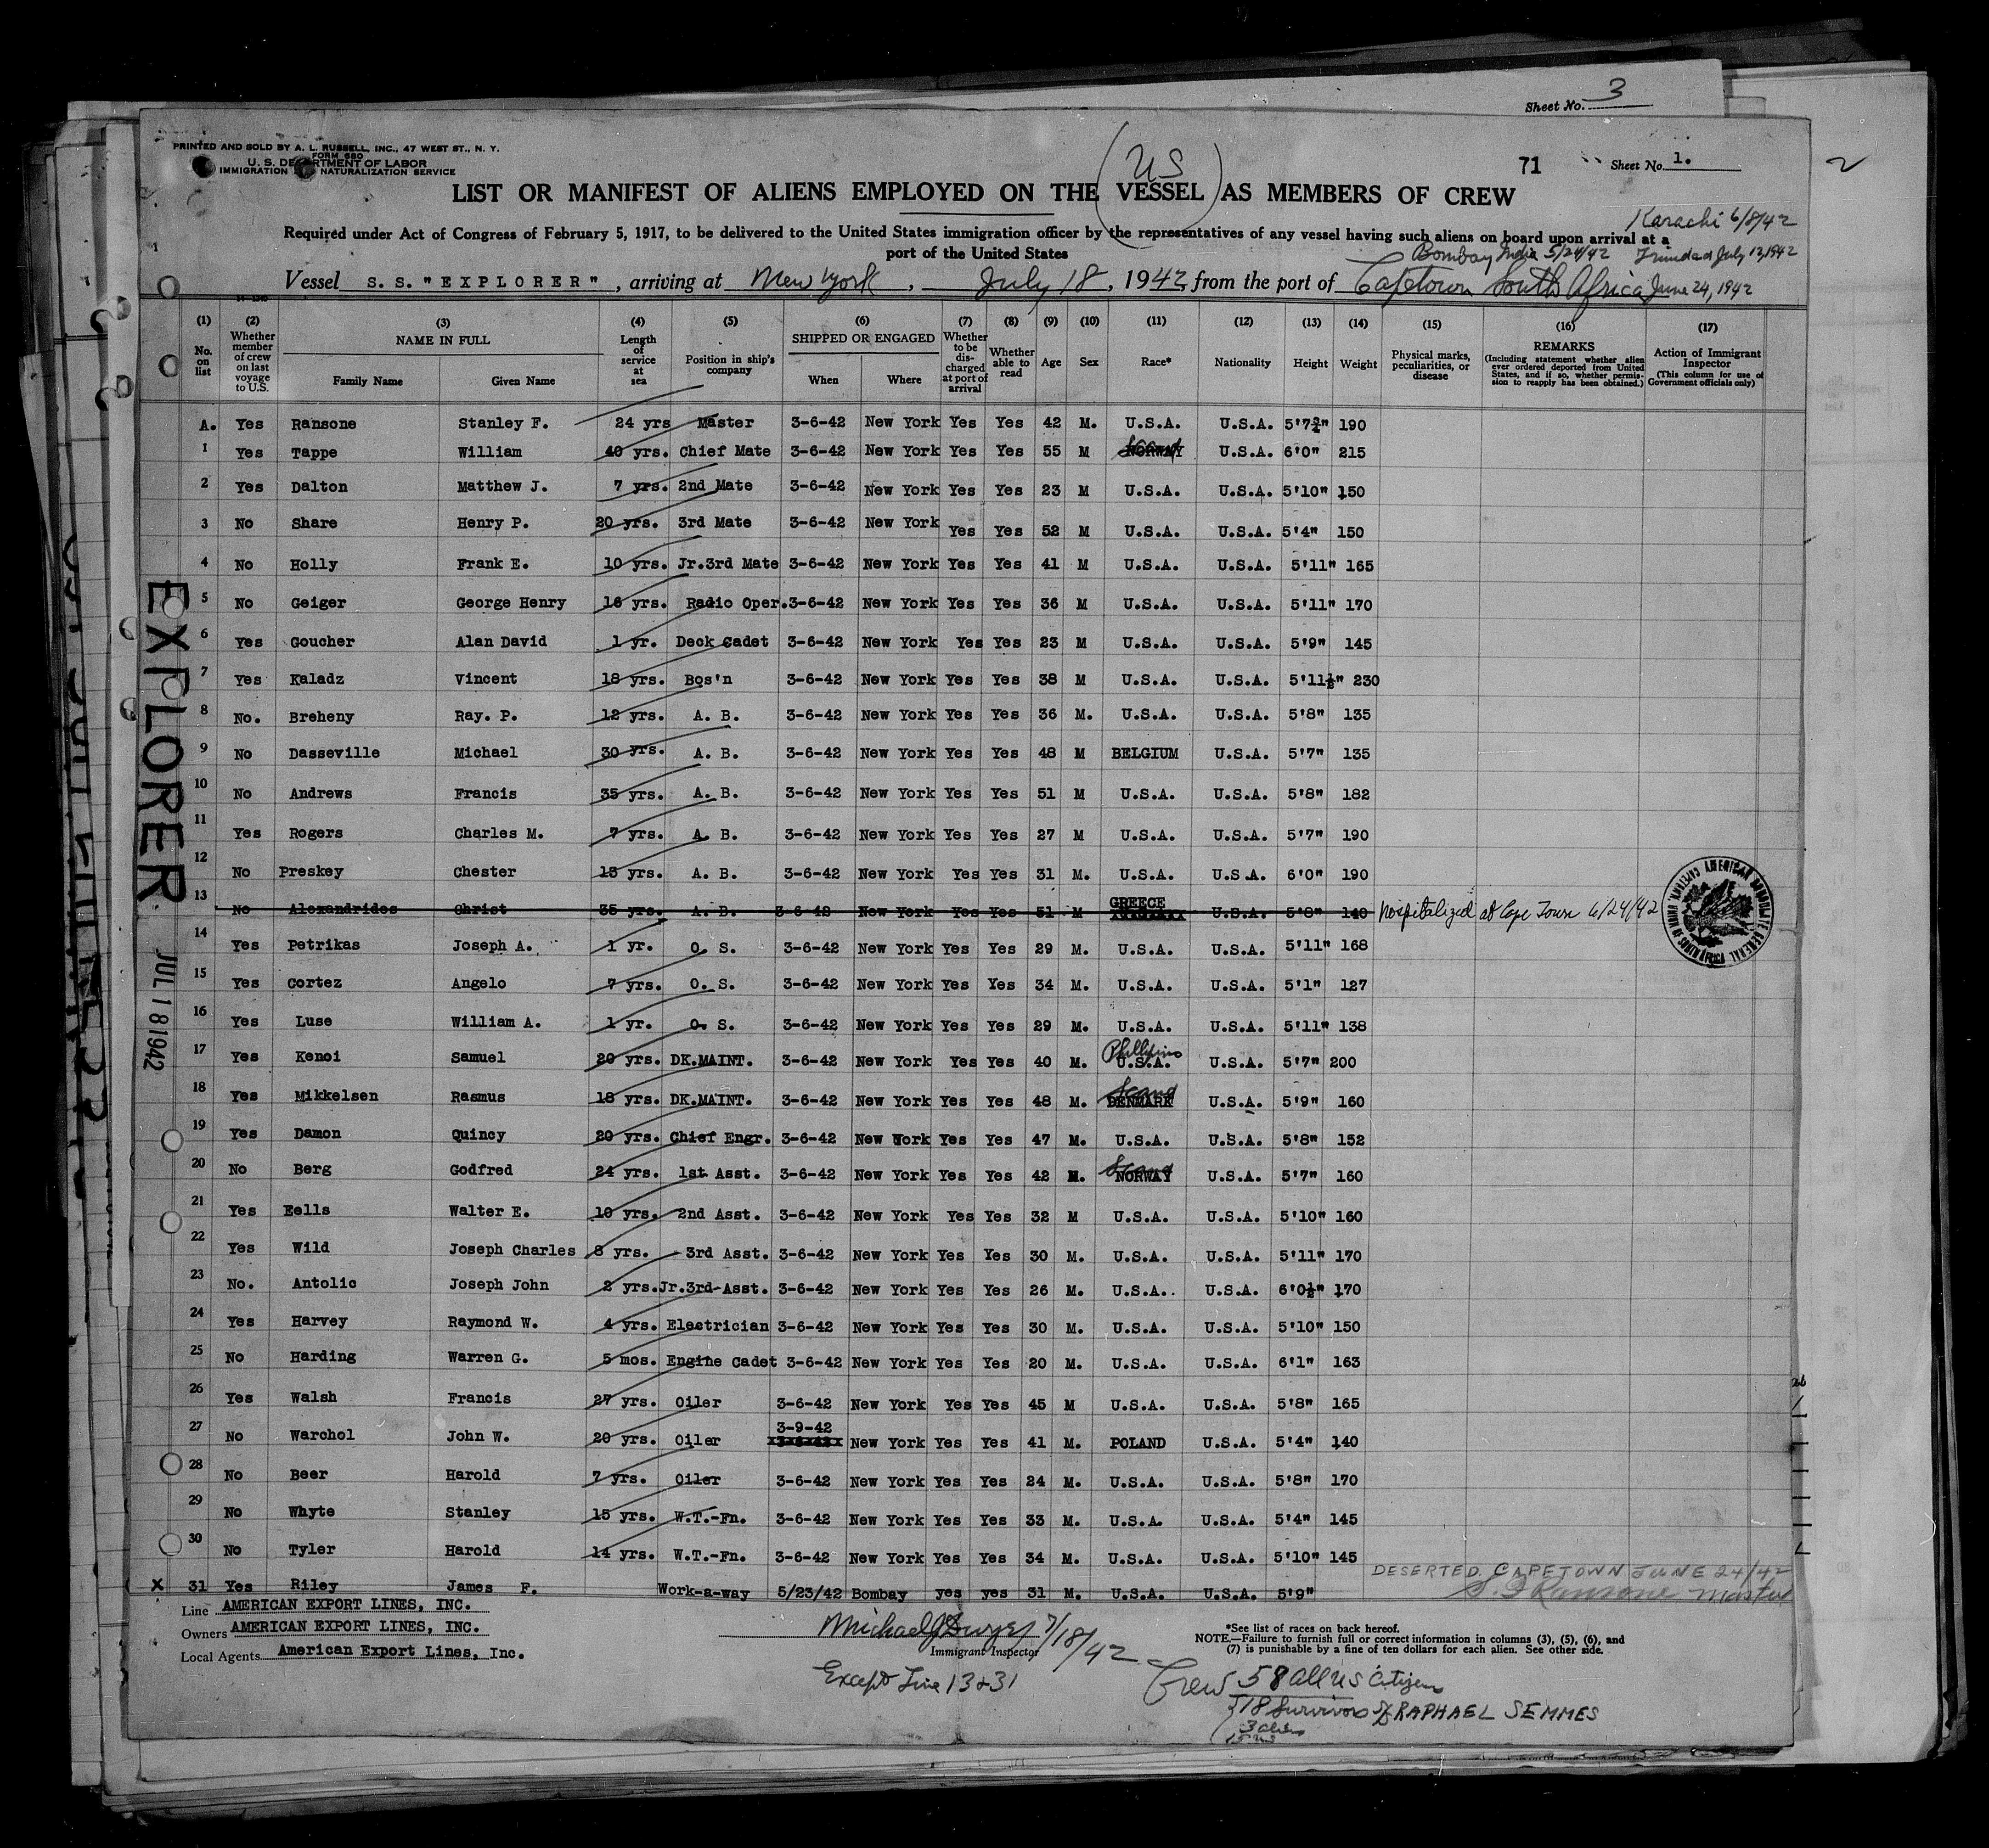 Sheet No. 3
PRINTED AND SOLD BY A. L. RUSSELL, INC., 47 WEST ST., N. Y.
FORM 680
U. S. DEPARTMENT OF LABOR
IMMIGRATION NATURALIZATION SERVICE
71 Sheet No. 1.
2
US
LIST OR MANIFEST OF ALIENS EMPLOYED ON THE (VESSEL) AS MEMBERS OF CREW
Karachi 6/8/42
Required under Act of Congress of February 5, 1917, to be delivered to the United States immigration officer by the representatives of any vessel having such aliens on board upon arrival at a
port of the United States
Bombay India 5/24/42 Trinidad July 12, 1942
Vessel S.S. "EXPLORER", arriving at New York, July 18, 1942, from the port of Capetown South Africa June 24, 1942
(1) No. on list
(2) Whether member of crew on last voyage to U.S.
(3) NAME IN FULL Family Name Given Name
(4) Length of service at sea
(5) Position in ship's company
(6) SHIPPED OR ENGAGED When Where
(7) Whether to be discharged at port of arrival
(8) Whether able to read
(9) Age
(10) Sex
(11) Race*
(12) Nationality
(13) Height
(14) Weight
(15) Physical marks, peculiarities, or disease
(16) REMARKS (Including statement whether alien ever ordered deported from United States, and if so, whether permission to reapply has been obtained.)
(17) Action of Immigrant Inspector (This column for use of Government officials only)
A. Yes Ransone Stanley F. 24 yrs Master 3-6-42 New York Yes Yes 42 M. U.S.A. U.S.A. 5'7¾" 190
1 Yes Tappe William 40 yrs. Chief Mate 3-6-42 New York Yes Yes 55 M NORWAY U.S.A. 6'0" 215
2 Yes Dalton Matthew J. 7 yrs. 2nd Mate 3-6-42 New York Yes Yes 23 M U.S.A. U.S.A. 5'10" 150
3 No Share Henry P. 20 yrs. 3rd Mate 3-6-42 New York Yes Yes 52 M U.S.A. U.S.A. 5'4" 150
4 No Holly Frank E. 10 yrs. Jr.3rd Mate 3-6-42 New York Yes Yes 41 M U.S.A. U.S.A. 5'11" 165
5 No Geiger George Henry 16 yrs. Radio Oper. 3-6-42 New York Yes Yes 36 M U.S.A. U.S.A. 5'11" 170
6 Yes Goucher Alan David 1 yr. Deck Cadet 3-6-42 New York Yes Yes 23 M U.S.A. U.S.A. 5'9" 145
7 Yes Kaladz Vincent 18 yrs. Bos'n 3-6-42 New York Yes Yes 38 M U.S.A. U.S.A. 5'11½" 230
8 No. Breheny Ray. P. 12 yrs. A. B. 3-6-42 New York Yes Yes 36 M. U.S.A. U.S.A. 5'8" 135
9 No Dasseville Michael 30 yrs. A. B. 3-6-42 New York Yes Yes 48 M BELGIUM U.S.A. 5'7" 135
10 No Andrews Francis 35 yrs. A. B. 3-6-42 New York Yes Yes 51 M U.S.A. U.S.A. 5'8" 182
11 Yes Rogers Charles M. 7 yrs. A. B. 3-6-42 New York Yes Yes 27 M U.S.A. U.S.A. 5'7" 190
12 No Preskey Chester 13 yrs. A. B. 3-6-42 New York Yes Yes 31 M. U.S.A. U.S.A. 6'0" 190
13 No Alexandrides Christ 35 yrs. A. B. 3-6-42 New York Yes Yes 51 M GREECE U.S.A. 5'8" 140 Hospitalized at Cape Town 6/24/42
14 Yes Petrikas Joseph A. 1 yr. O. S. 3-6-42 New York Yes Yes 29 M. U.S.A. U.S.A. 5'11" 168
15 Yes Cortez Angelo 7 yrs. O. S. 3-6-42 New York Yes Yes 34 M. U.S.A. U.S.A. 5'1" 127
16 Yes Luse William A. 1 yr. O. S. 3-6-42 New York Yes Yes 29 M. U.S.A. U.S.A. 5'11" 138
17 Yes Kenoi Samuel 20 yrs. DK.MAINT. 3-6-42 New York Yes Yes 40 M. Phillipino U.S.A. U.S.A. 5'7" 200
18 Yes Mikkelsen Rasmus 18 yrs. DK.MAINT. 3-6-42 New York Yes Yes 48 M. Scand DENMARK U.S.A. 5'9" 160
19 Yes Damon Quincy 20 yrs. Chief Engr. 3-6-42 New Work Yes Yes 47 M. U.S.A. U.S.A. 5'8" 152
20 No Berg Godfred 24 yrs. 1st Asst. 3-6-42 New York Yes Yes 42 M. Scand NORWAY U.S.A. 5'7" 160
21 Yes Eells Walter E. 10 yrs. 2nd Asst. 3-6-42 New York Yes Yes 32 M U.S.A. U.S.A. 5'10" 160
22 Yes Wild Joseph Charles 8 yrs. 3rd Asst. 3-6-42 New York Yes Yes 30 M. U.S.A. U.S.A. 5'11" 170
23 No. Antolic Joseph John 2 yrs. Jr.3rd-Asst. 3-6-42 New York Yes Yes 26 M. U.S.A. U.S.A. 6'0½" 170
24 Yes Harvey Raymond W. 4 yrs. Electrician 3-6-42 New York Yes Yes 30 M. U.S.A. U.S.A. 5'10" 150
25 No Harding Warren G. 5 mos. Engine Cadet 3-6-42 New York Yes Yes 20 M. U.S.A. U.S.A. 6'1" 163
26 Yes Walsh Francis 27 yrs. Oiler 3-6-42 New York Yes Yes 45 M U.S.A. U.S.A. 5'8" 165
27 No Warchol John W. 20 yrs. Oiler 3-9-42 New York Yes Yes 41 M. POLAND U.S.A. 5'4" 140
28 No Beer Harold 7 yrs. Oiler 3-6-42 New York Yes Yes 24 M. U.S.A. U.S.A. 5'8" 170
29 No Whyte Stanley 15 yrs. W.T.-Fn. 3-6-42 New York Yes Yes 33 M. U.S.A. U.S.A. 5'4" 145
30 No Tyler Harold 14 yrs. W.T.-Fn. 3-6-42 New York Yes Yes 34 M. U.S.A. U.S.A. 5'10" 145
DESERTED CAPETOWN JUNE 24/42
X 31 Yes Riley James F. Work-a-way 5/23/42 Bombay yes yes 31 M. U.S.A. U.S.A. 5'9" S. F. Ransone Master
Line AMERICAN EXPORT LINES, INC.
Owners AMERICAN EXPORT LINES, INC.
Local Agents American Export Lines, Inc.
Michael J Dwyer 7/18/42
Immigrant Inspector
Except Line 13 & 31
*See list of races on back hereof.
NOTE.—Failure to furnish full or correct information in columns (3), (5), (6), and
(7) is punishable by a fine of ten dollars for each alien. See other side.
Crew 58 all US Citizens
18 Survivors of RAPHAEL SEMMES
3 aliens
EXPLORER
JUL 18 1942
AMERICAN CONSULATE GENERAL